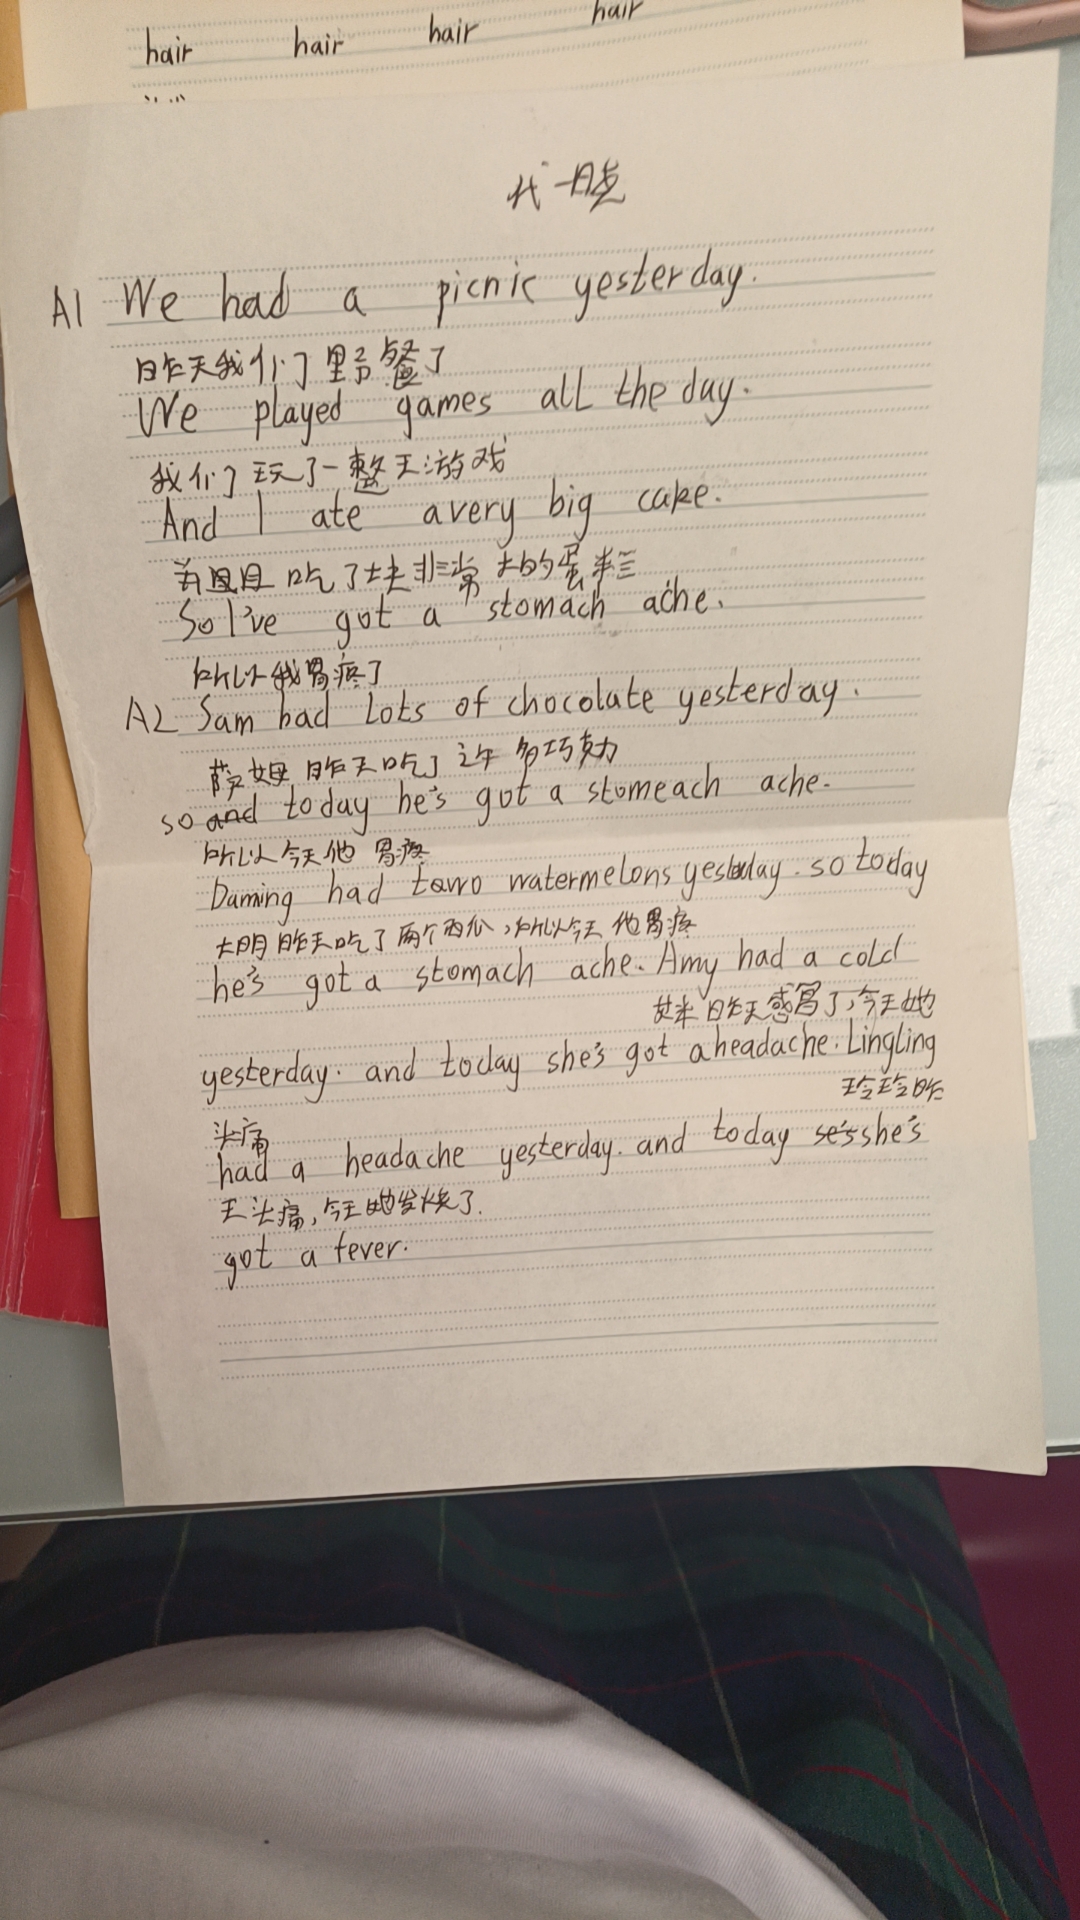 hair hair hair hair
代一晓
A1 We had a picnic yesterday.
昨天我们野餐了
We played games all the day.
我们玩了一整天游戏
And I ate avery big cake.
并且且吃了块非常大的蛋糕
So I've got a stomach ache.
所以我胃疼了
A2 Sam had lots of chocolate yesterday.
萨姆昨天吃了许多巧克力
so and today he's got a stomeach ache.
所以今天他胃疼
Daming had towo watermelons yesterday. so today
大明昨天吃了两个西瓜,所以今天他胃疼
he's got a stomach ache. Amy had a cold
艾米昨天感冒了,今天她
yesterday. and today she's got aheadache. Lingling
玲玲昨
头痛
had a headache yesterday. and today se's she's
天头痛,今天她发烧了.
got a fever.